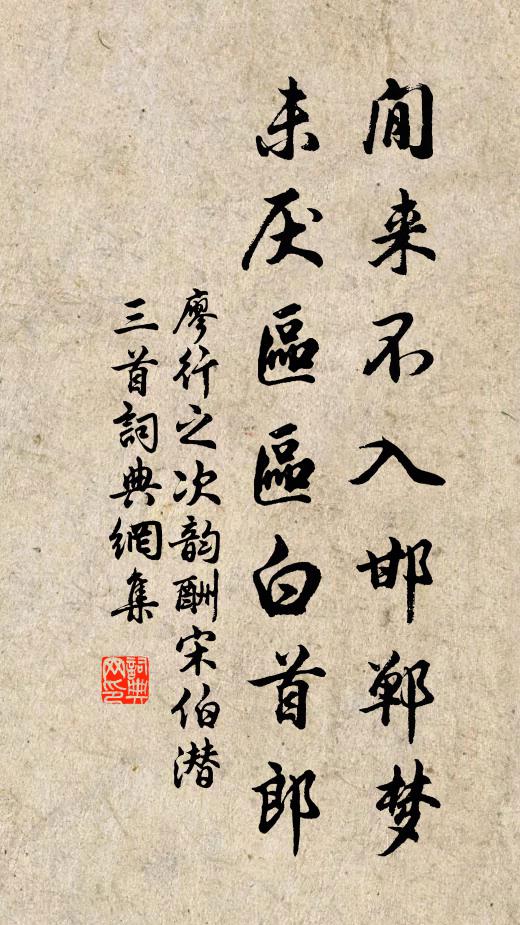 閒来不入邯郸梦
未厌區區白首郎
廖行之次韵酬宋伯潜
三首詞典網集
詞典网印